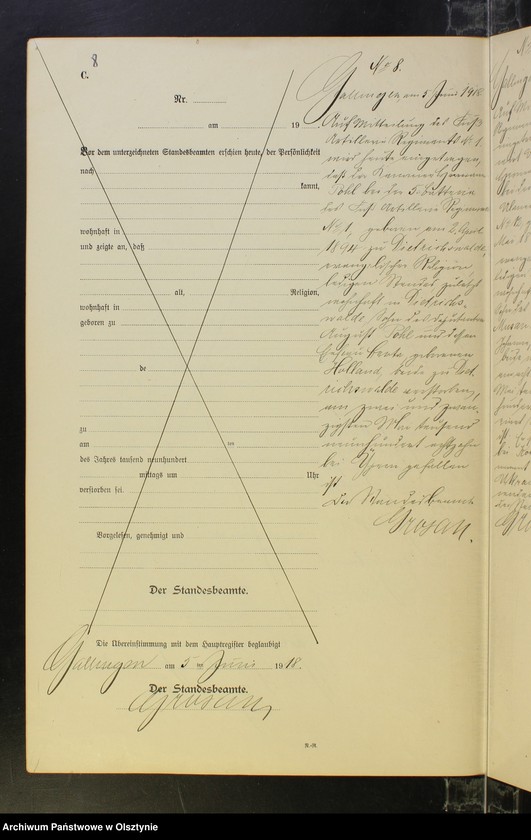 8
C.
Nr.
am 19
Vor dem unterzeichneten Standesbeamten erschien heute, der Persönlichkeit
nach
kannt,
wohnhaft in
und zeigte an, daß
alt, Religion,
wohnhaft in
geboren zu
de
zu
am ten
des Jahres tausend neunhundert
mittags um Uhr
verstorben sei.
Vorgelesen, genehmigt und
Der Standesbeamte.
Die Übereinstimmung mit dem Hauptregister beglaubigt
Gallingen am 5 ten Juni 1918.
Der Standesbeamte.
Grosan
R.-R.
No 8.
Gallingen, am 5. Juni 1918
Auf Mitteilung des
Artillerie Regiments № 1
wird heute eingetragen,
daß der Kanonier Hermann
Pohl bei der 5. Batterie
des Artillerie Regiment
№ 1, geboren am 2. April
1894 zu Dietrichswalde,
evangelischer Religion
ledigen Standes zuletzt
wohnhaft in Dietrichs-
walde, Sohn des
August Pohl und dessen
Ehefrau geborenen
Holland, beide zu Diet-
richswalde verstorben,
am zwei und zwan-
zigsten Mai tausend
neunhundert achtzehn
bei Ypern gefallen
ist
Der Standesbeamte
Grosan.
Archiwum Państwowe w Olsztynie